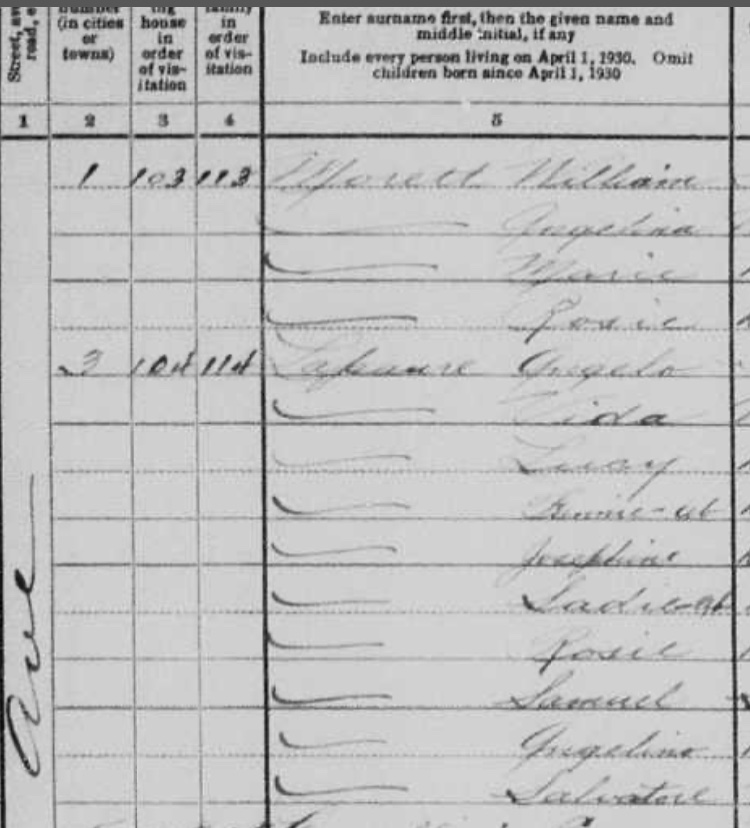 Street, av
road, e
number
(in cities
or
towns)
ing
house
in
order
of vis-
itation
family
in
order
of vis-
itation
Enter surname first, then the given name and
middle initial, if any
Include every person living on April 1, 1930. Omit
children born since April 1, 1930
1 2 3 4 5
1 103 113 Morett William
Angelina
Marie
Rosie
3 104 114 Angelo
Lucy
Fennie-ab
Josephine
Sadie-ab
Rosie
Samuel
Angelina
Salvatore
Ave